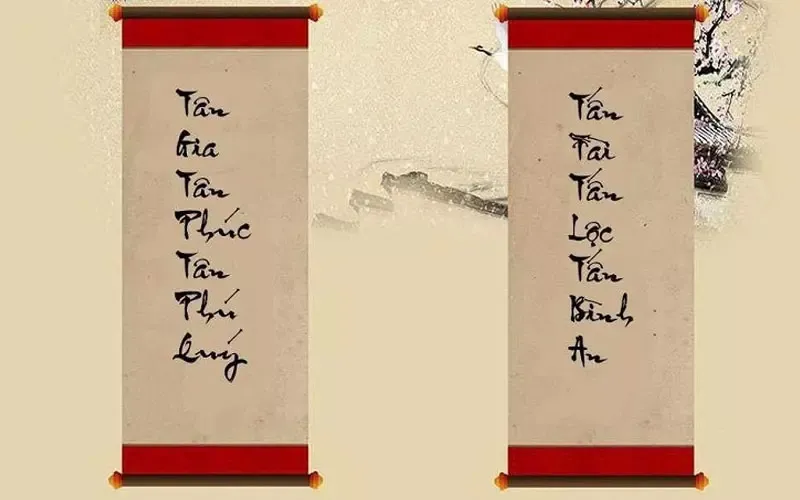 Tân
Gia
Tân
Phúc
Tân
Phú
Quý
Tấn
Tài
Tấn
Lộc
Tấn
Bình
An